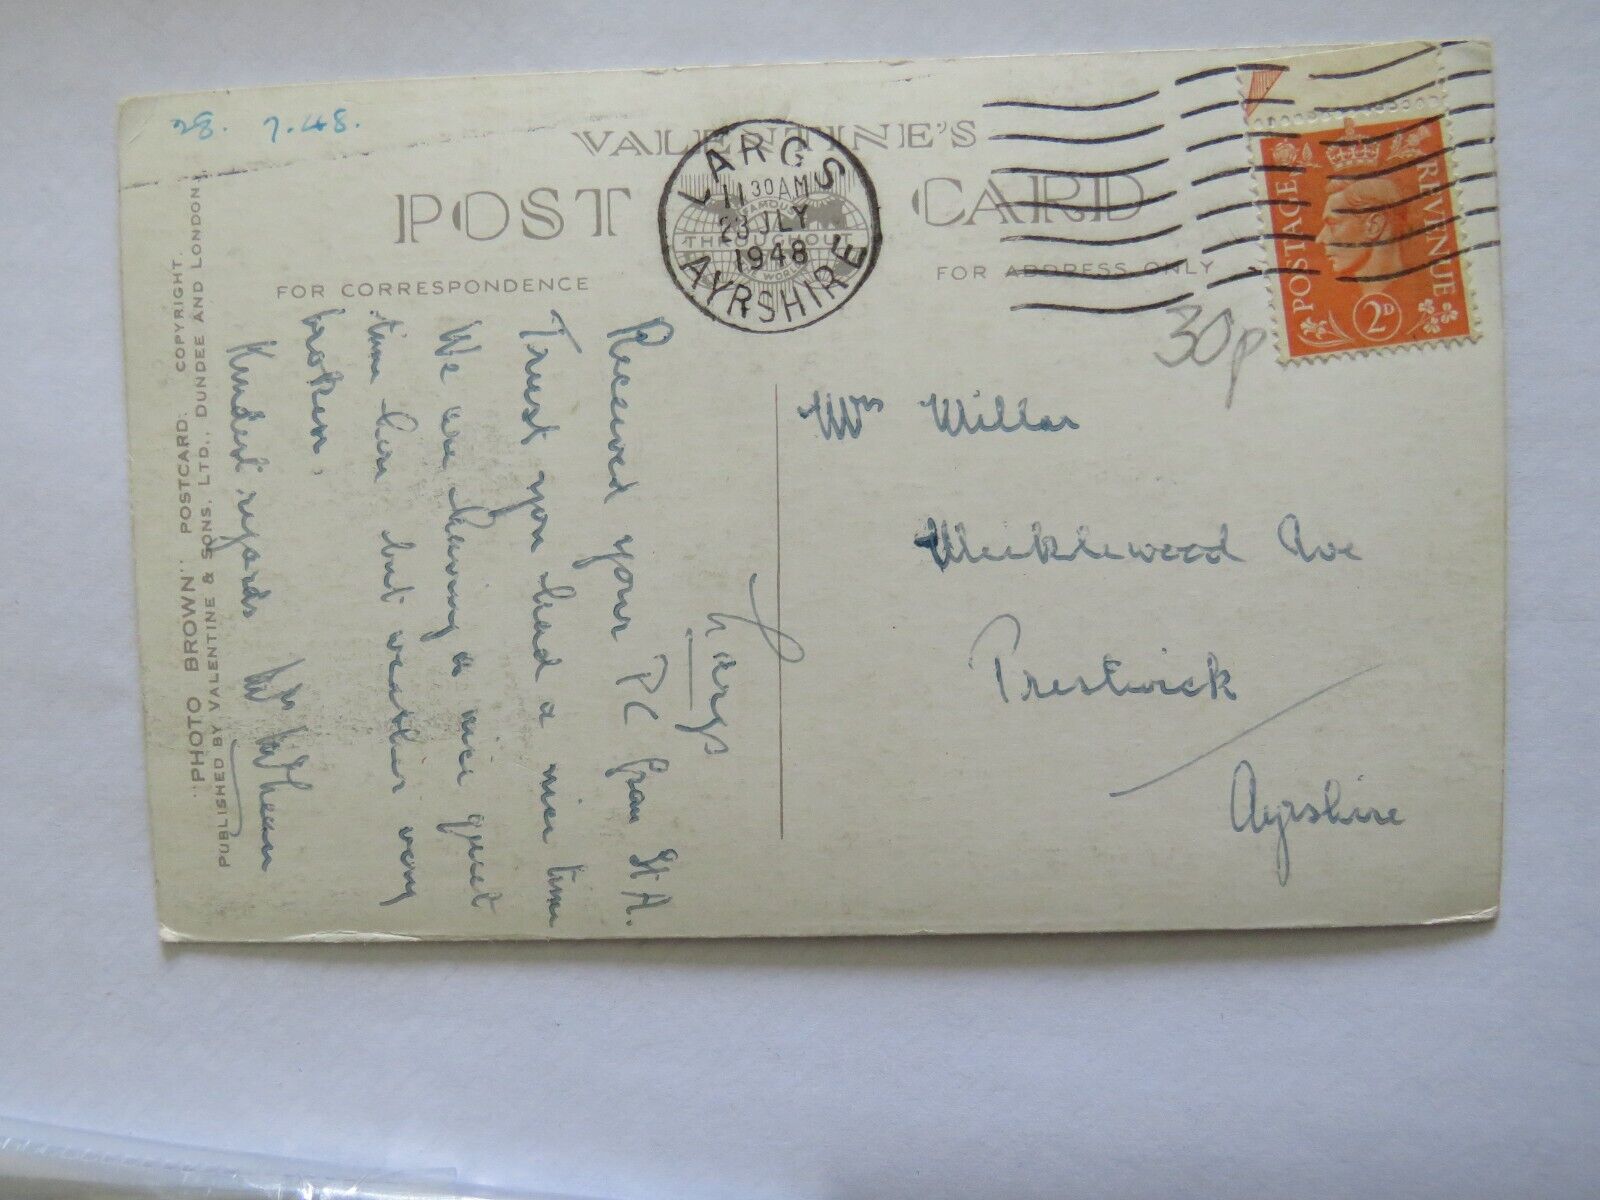 28. 7.48.
VALENTINE'S
POST CARD
FOR CORRESPONDENCE
FOR ADDRESS ONLY
FAMOUS
THROUGHOUT
WORLD
LARGS
11 30 AM
JLY
1948
AYRSHIRE
POSTAGE REVENUE
2D
30p
Largs
Received your P C from St A.
Trust you had a nice time
We are having a nice quiet
time here but weather very
broken.
Kindest regards
"PHOTO BROWN" POSTCARD. COPYRIGHT.
PUBLISHED BY VALENTINE & SONS. LTD., DUNDEE AND LONDON
Mrs Millar
Meiklewood Ave
Prestwick
Ayrshire